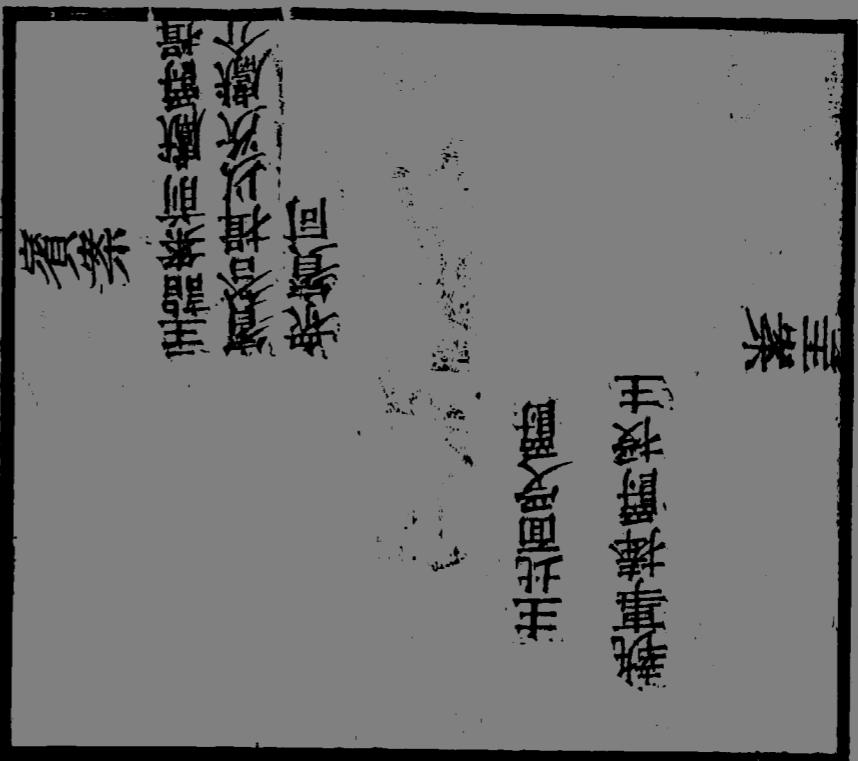 賓案
主詣案前獻爵揖
賓答揖以次獻介
同
主北面取爵
執事捧爵授主
主案